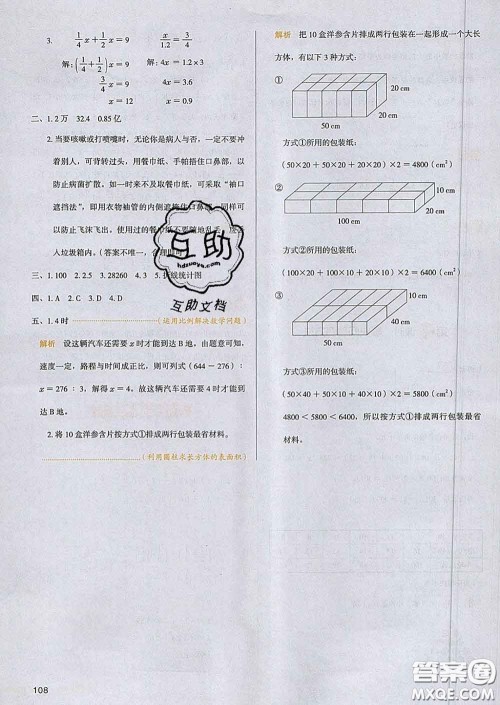 3. 1/4 x + 1/2 x = 9  x/1.2 = 3/4
解：(1/4 + 1/2) x = 9  解：4x = 1.2×3
3/4 x = 9  4x = 3.6
x = 12  x = 0.9
二、1. 2万  32.4  0.85亿
2. 当要咳嗽或打喷嚏时，无论你是病人与否，一定不要冲
着别人，可背转过头，用餐巾纸、手帕捂住口鼻部，以
防止病菌扩散，如一时来不及取餐巾纸，可采取“袖口
遮挡法”，即用衣物袖管的内侧遮掩住口鼻部，同样可
以防止飞沫飞出。使用过的餐巾纸不要随地乱丢，应
丢垃圾箱内。（答案不唯一，合理即可）
三、1. 100  2. 2.5  3. 28260  4. 3  5. 折线统计图
四、1. A  2. C  3. D  4. D
五、1. 4时（运用比例解决数学问题）
解析 设这辆汽车还需要x时才能到达B地，由题意可知，
速度一定，路程与时间成正比，则可列式(644 − 276)：
x = 276 ：3，解得x = 4。故这辆汽车还需要4时才能到
达B地。
2. 将10盒洋参含片按方式①排成两行包装最省材料。
（利用圆柱求长方体的表面积）
解析 把10盒洋参含片排成两行包装在一起形成一个大长
方体，有以下3种方式：
①
20 cm
20 cm
50 cm
方式①所用的包装纸：
(50×20 + 50×20 + 20×20) × 2 = 4800 (cm²)
②
10 cm
20 cm
100 cm
方式②所用的包装纸：
(100×20 + 100×10 + 20×10) × 2 = 6400 (cm²)
③
10 cm
40 cm
50 cm
方式③所用的包装纸：
(50×40 + 50×10 + 40×10) × 2 = 5800 (cm²)
4800 < 5800 < 6400，所以按方式①排成两行包装最省
材料。
互助
hdzuoye.com
互助文档
108
答案圈
MXQE.COM